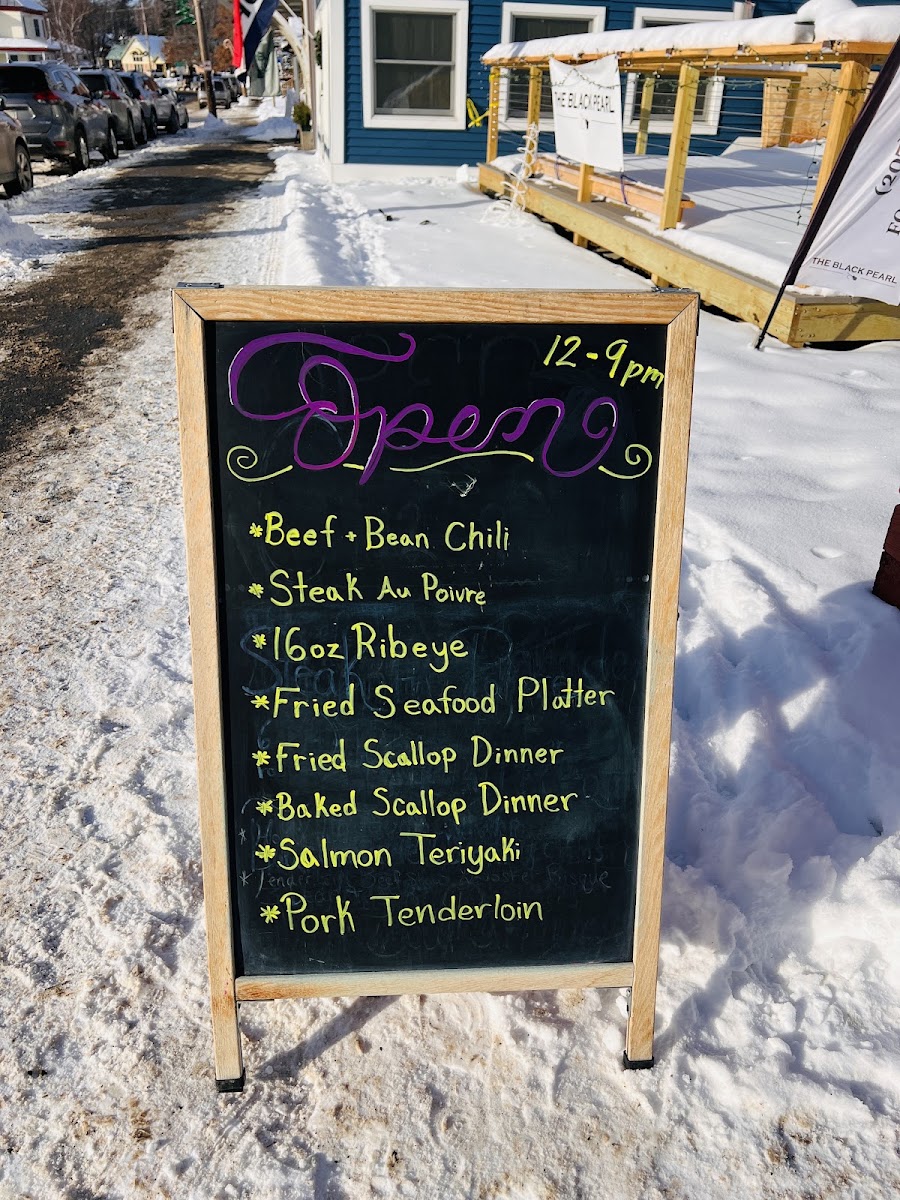 THE BLACK PEARL
(207
FO
THE BLACK PEARL
12-9pm
Open
*Beef + Bean Chili
*Steak Au Poivre
*16oz Ribeye
*Fried Seafood Platter
*Fried Scallop Dinner
*Baked Scallop Dinner
*Salmon Teriyaki
*Pork Tenderloin